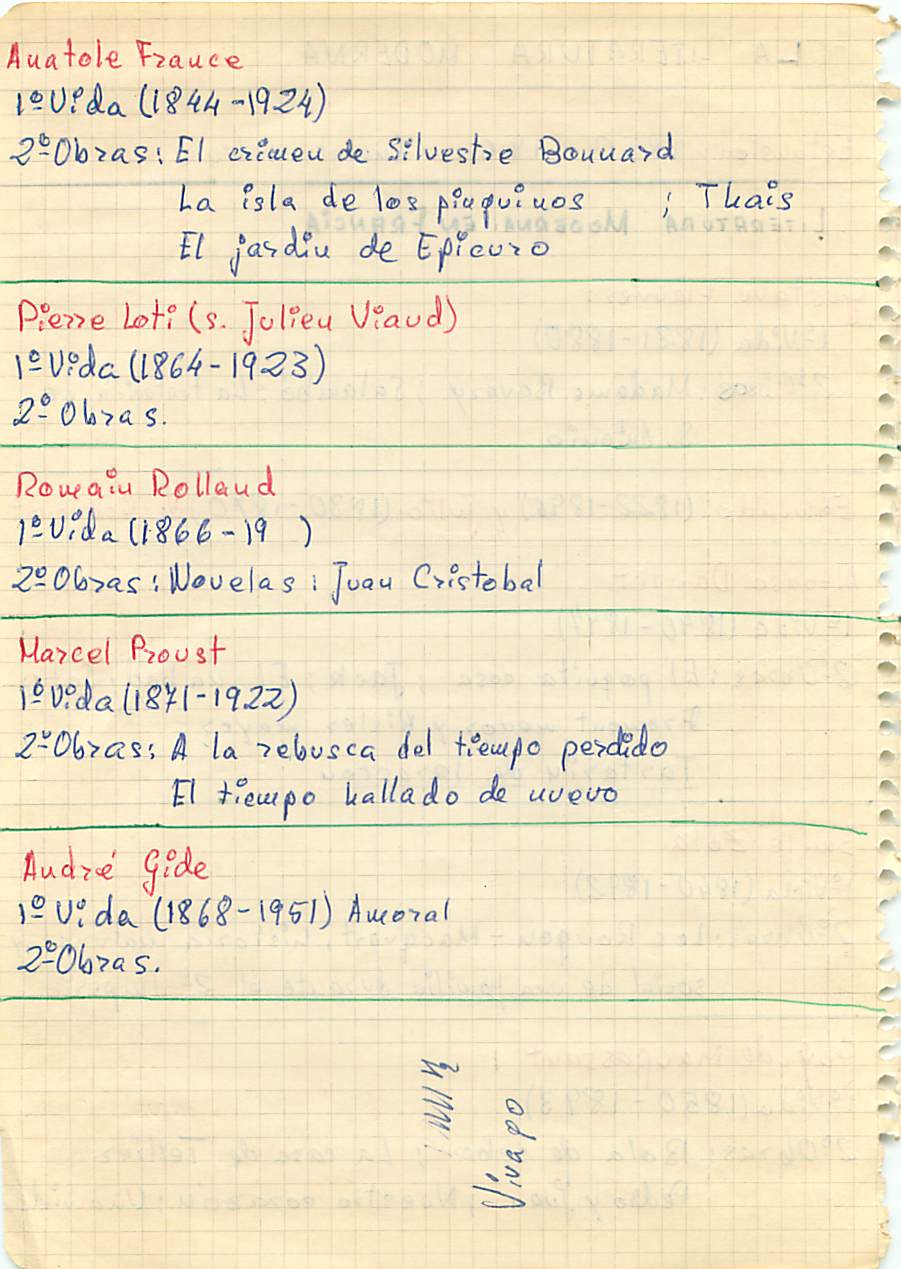 Anatole France
1º Vida (1844-1924)
2º Obras: El crimen de Silvestre Bonnard
La isla de los pinguinos ; Thais
El jardin de Epicuro
Pierre Loti (s. Julien Viaud)
1º Vida (1864-1923)
2º Obras.
Romain Rolland
1º Vida (1866-19 )
2º Obras: Novelas: Juan Cristobal
Marcel Proust
1º Vida (1871-1922)
2º Obras: A la rebusca del tiempo perdido
El tiempo hallado de nuevo
André Gide
1º Vida (1868-1951) Amoral
2º Obras.
Vivapo